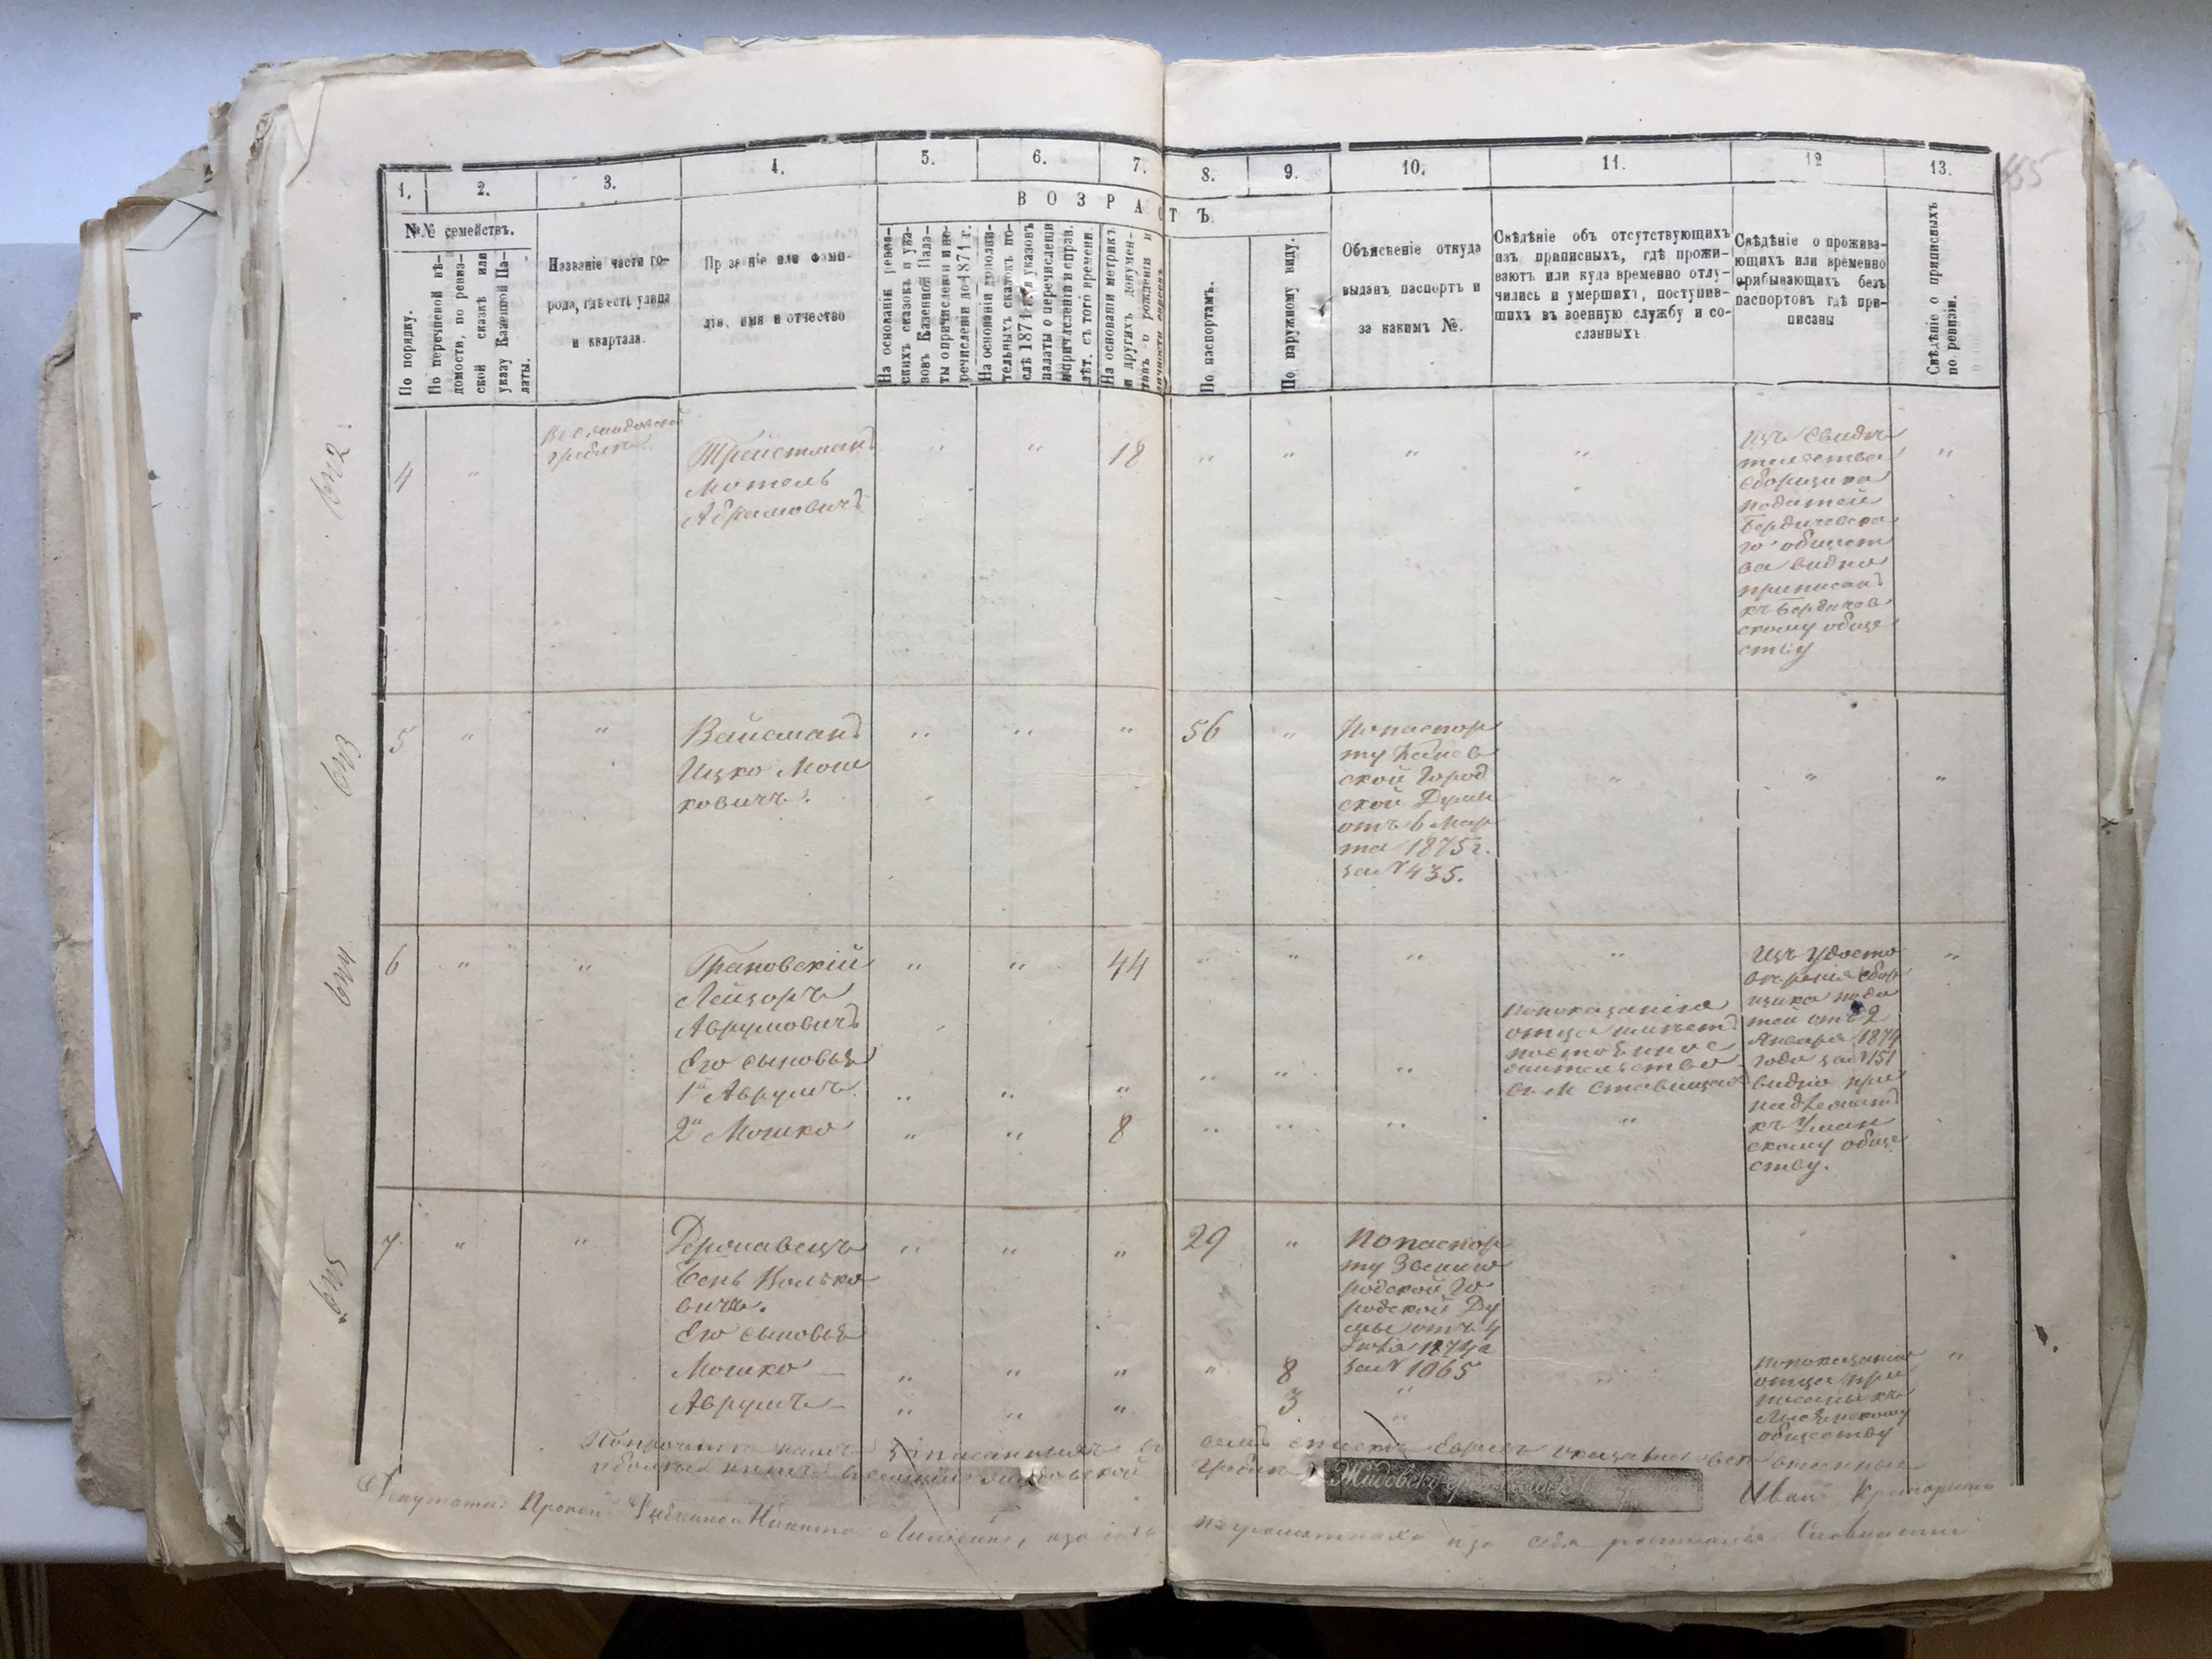 1.
2.
3.
4.
5.
6.
7.
8.
9.
10.
11.
12
13.
ВОЗРАСТЪ.
№№ семействъ.
По порядку.
По перечневой вѣ-
домости, по ревиз-
ской сказкѣ или
указу Казенной Па-
латы.
Названіе части го-
рода, гдѣ есть улица
и квартала.
Прозваніе или фами-
лія, имя и отчество
На основаніи ревиз-
скихъ сказокъ и ука-
зовъ Казенной Пала-
ты о причисленіи и пе-
речисленіи до 1871 г.
На основаніи дополни-
тельныхъ сказокъ по-
слѣ 1871 г. и указовъ
палаты о перечисленіи
и причисленіи и справ.
лѣт. съ того времени.
На основаніи метрикъ
и другихъ докумен-
товъ о рожденіи и
По паспортамъ.
По наружному виду.
Объясненіе откуда
выданъ паспортъ и
за какимъ №.
Свѣдѣніе объ отсутствующихъ
изъ приписныхъ, гдѣ прожи-
ваютъ или куда временно отлу-
чились и умершихъ, поступив-
шихъ въ военную службу и со-
сланныхъ
Свѣдѣніе о прожива-
ющихъ или временно
прибывающихъ безъ
паспортовъ гдѣ при-
писаны
Свѣдѣніе о приписныхъ
по ревизіи.
642
4
Трейстманъ
Мотель
Абрамовичъ
18
Изъ Свидѣ
тельства
сборщика
податей
Бердичевска
го общест
ва видно
приписанъ
къ Бердичев
скому обще
ству
643
5
Вайсманъ
Ицко Мош
ковичъ.
56
По паспор
ту Канев
ской Город
ской Думы
отъ 6 Мар
та 1875 г.
за № 435.
644
6
Грановскій
Лейзоръ
Аврумовичъ
Его сыновья
1й Аврумъ
2й Мошко
44
8
По показанію
отца имѣетъ
постоянное
жительство
въ м Ставищахъ
Изъ Удосто
вѣренія сбор
щика пода
тей отъ 2
Января 1874
года за № 151
видно при
надлежатъ
къ Уман
скому обще
ству.
645
7.
Бень Волько
вичъ.
Его сыновья
Мошко
Аврумъ
29
8
3
По паспор
ту Звениго
родской Го
родской Ду
мы отъ 4
1874 г
за № 1065
По показанію
отца при
писаны къ
Лисянскому
обществу
записанныхъ въ
семъ спискѣ Евреевъ
Жидовско-
Никита
Иванъ